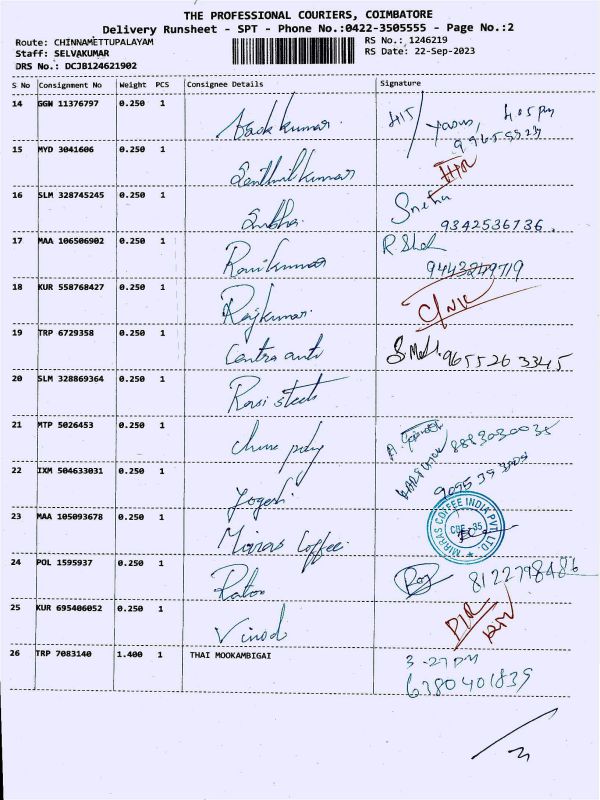 THE PROFESSIONAL COURIERS, COIMBATORE
Delivery Runsheet - SPT - Phone No.:0422-3505555 - Page No.:2
Route: CHINNAMETTUPALAYAM RS No.: 1246219
Staff: SELVAKUMAR RS Date: 22-Sep-2023
DRS No.: DCJB124621902
S No Consignment No Weight PCS Consignee Details Signature
14 GGN 11376797 0.250 1 4.05 pm
15 MYD 3041606 0.250 1 Senthilkumar
16 SLM 328745245 0.250 1 Subha Sneha
9342536736
17 MAA 106506902 0.250 1 Ravikumar
18 KUR 558768427 0.250 1 Rajkumar
19 TRP 6729358 0.250 1 9655263345
20 SLM 328869364 0.250 1
21 MTP 5026453 0.250 1 8883030035
22 IXM 504633031 0.250 1 Yogesh
23 MAA 105093678 0.250 1 Mirras Coffee MIRRAS COFFEE INDIA PVT. LTD. CBE-35
24 POL 1595937 0.250 1 Raj 8122798486
25 KUR 695406052 0.250 1 Vinod
26 TRP 7083140 1.400 1 THAI MOOKAMBIGAI 3-27 PM
6380401839